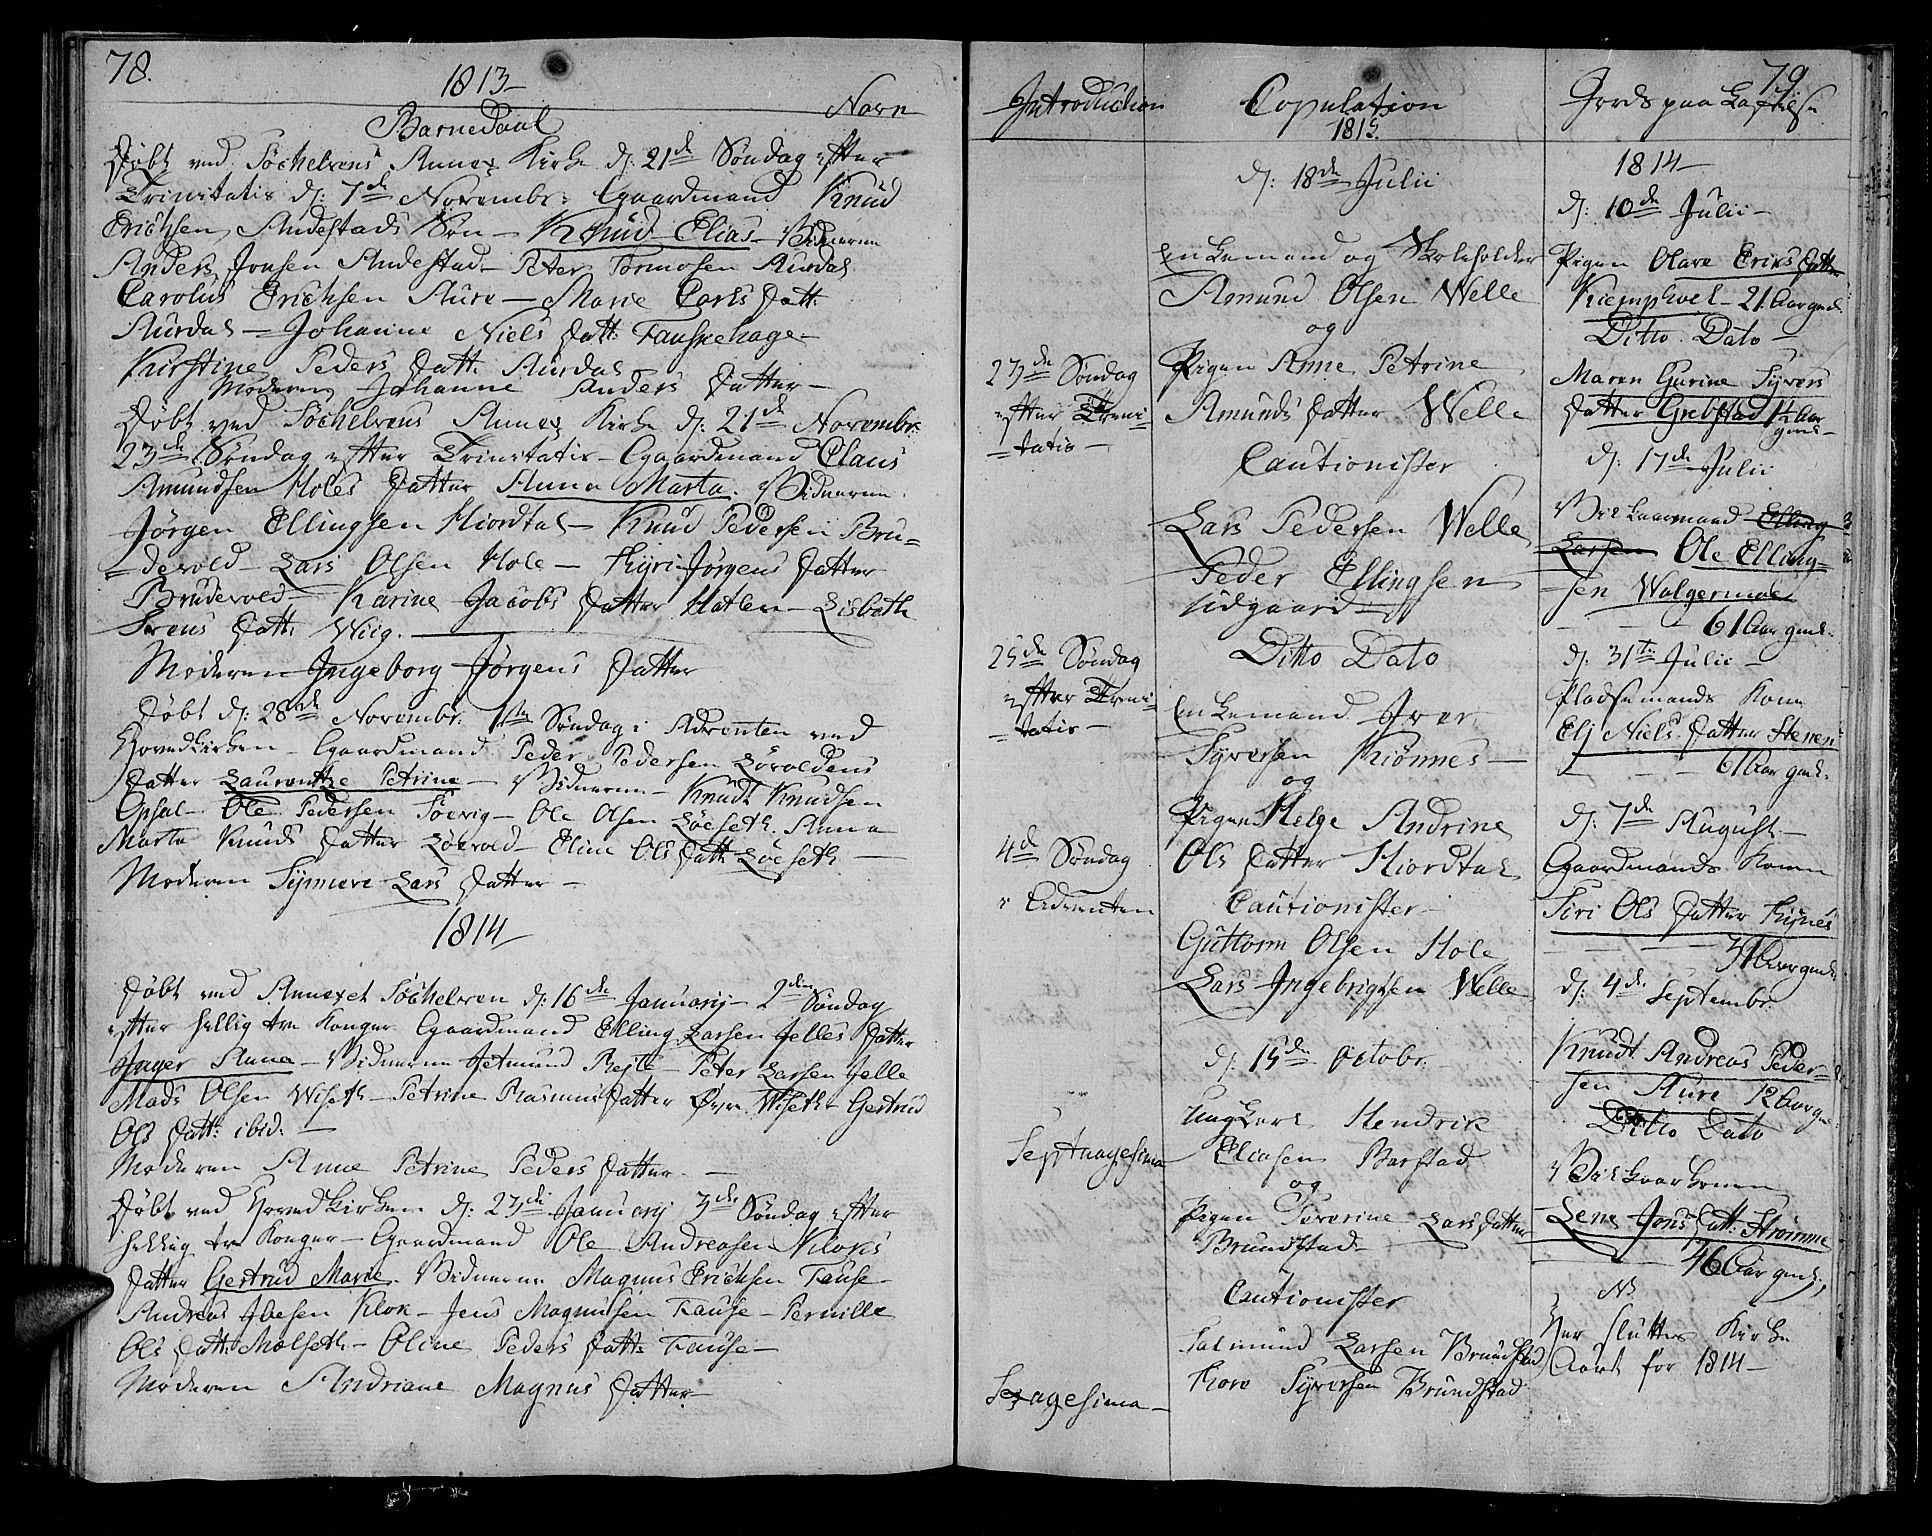 78.
1813
Barnedaab
Navn
Døbt ved Søchelvens Annex Kirke d: 21de Søndag efter
Trinitatis d: 7de Novembr: Gaardmand Knud
Erichsen Andestads Søn - Knud Elias - Vidnerne
Anders Jonsen Andestad - Peter Tormosen Aurdal
Carolus Erichsen Aure - Marie Carls Datt:
Aurdal - Johanne Niels Datt: Fauskehage -
Kirstine Peders Datt: Aurdal
Moderen Johanne Anders Datter -
Døbt ved Søchelvens Annex Kirke d: 21de Novembr:
23de Søndag efter Trinitatis - Gaardmand Claus
Amundsen Holes Datter Anna Marta. Vidnerne
Jørgen Ellingsen Hiordtal - Knud Pedersen Bru=
=devold - Lars Olsen Hole - Kyri Jørgens Datter
Brudevold - Karine Jacobs Datter Hatlen - Lisbeth
Srens Datt: Wiig.
Moderen Ingeborg Jørgens Datter
Døbt d: 28de Novembr. 1ste Søndag i Adventen ved
Hovedkirken - Gaardmand Peder Pedersen Løvoldens
Datter Laurentze Petrine - Vidnerne - Knudt Knudsen
Opsal - Ole Pedersen Søevig - Ole Olsen Løeseth. Anna
Marta Knuds Datter Løevold - Eline Ols Datt: Løeseth
Moderen Synneve Lars Datter -
1814
Døbt ved Annexet Søchelven d: 16de Januarij - 2den Søndag
efter hellig tre Konger Gaardmand Elling Larsen Jelles Datter
Inger Anna - Vidnerne Jetmund Rejte - Peter Larsen Jelle
Mads Olsen Wiseth - Petrine Rasmus Datter Øvre Wiseth - Gertrud
Ols Datt: ibid: -
Moderen Anne Petrine Peders Datter -
Døbt ved Hovedkirken d: 23de Januarij 3de Søndag efter
hellig tre Konger - Gaardmand Ole Andreasen Kloks
Datter Gertrud Marie. Vidnerne Magnus Erichsen Fause -
Andreas Ibesen Klok - Jens Magnusen Fause - Pernille
Ols Datt: Molseth - Oline Peders Datt: Fause -
Moderen Andriane Magnus Datter -
Introduction
23de Søndag
efter Trini=
=tatis -
25de Søndag
efter Trini=
=tatis -
4de Søndag
i Adventen
Septuagesima
Sexagesima -
Copulation
1813.
d: 18de Julii
Enkemand og Skoleholder
Amund Olsen Welle
og
Pigen Anne Petrine
Amunds Datter Welle
Cautionister
Lars Pedersen Welle
Peder Ellingsen
Udgaard -
Ditto Dato
Enkemand Iver
Syversen Kiønnes -
og
Pigen Helge Andrine
Ols Datter Hiordtal
Cautionister -
Guttorm Olsen Hole
Lars Ingebrigtsen Welle
d: 15de Octobr.
Ungkarl Hendrik
Eliasen Barstad
og
Pigen Severine Lars Datter
Brundstad -
Cautionister
Salmund Larsen Brundstad
Kore Syversen Brundstad
79
Jords paa Kastelse
1814
d: 10de Julii -
Pigen Olave Eriks Datter
Kiemphol - 21 Aar gml.
Ditto Dato -
Maren Gurine Syvers
Datter Grebstad 1½ Aar
gml -
d: 17de Julii
Vilkaarmand Elling
Larsen Ole Elling=
sen Walgermoe
61 Aar gml.
d: 31te Julii -
Pladsemands Kone
Eli Niels Datter Stenen
61 Aar gml.
d: 7de August -
Gaardmands Konen
Siri Ols Datter
Aar gml.
d: 4de Septembr.
Knudt Andreas Peder=
sen Aure 12 Aar gl.
Ditto Dato
Vilkaar Konen
Lene Jons Datt: Strømme
46 Aar gml.
NB
Her slutter Kirke
Aaret for 1814 -